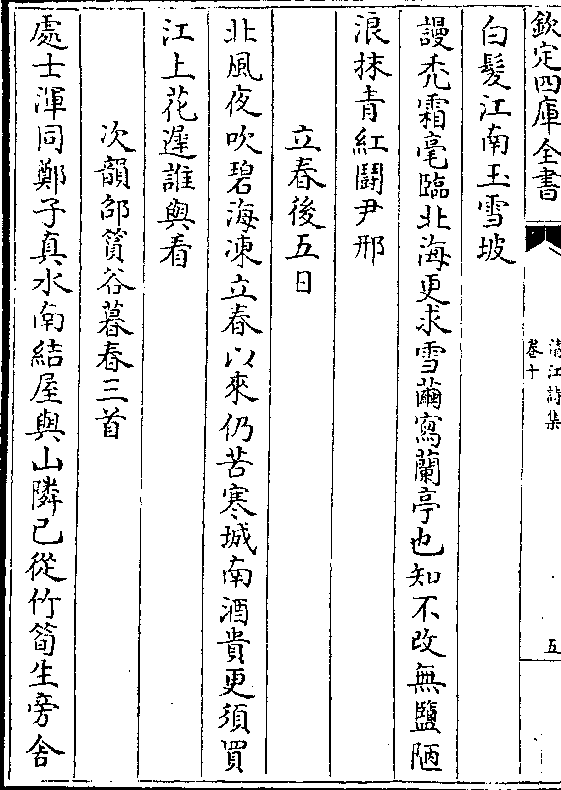 欽定四庫全書
清江詩集
卷十
五
白髮江南玉雪坡
謾禿霜毫臨北海更求雪繭寫蘭亭也知不改無鹽陋
浪抹青紅鬪尹邢
立春後五日
北風夜吹碧海凍立春以來仍苦寒城南酒貴更須買
江上花遲誰與看
次韻邵筼谷暮春三首
處士渾同鄭子真水南結屋與山隣已從竹筍生旁舍